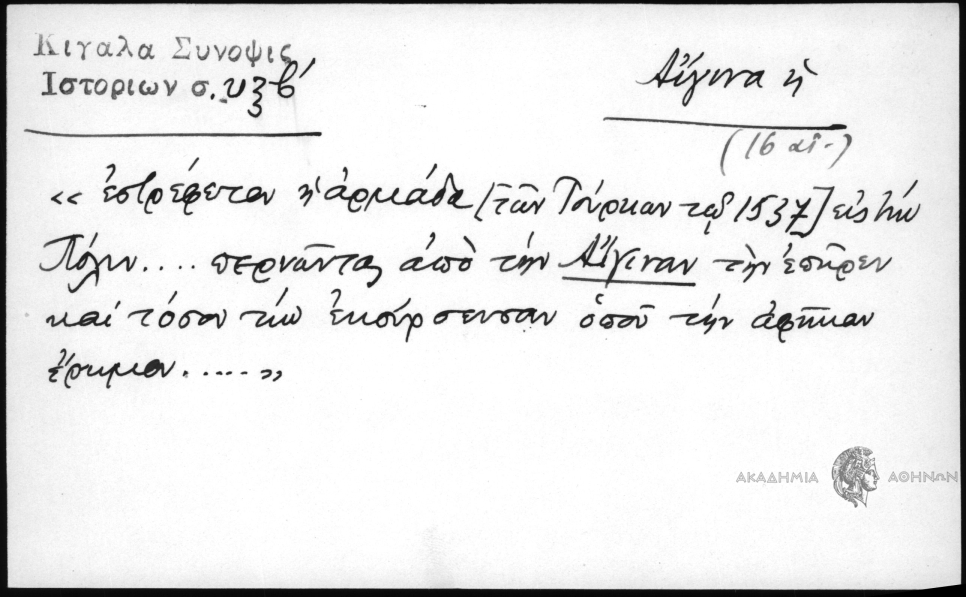 Κιγαλα Συνοψις
Ιστοριων σ. υξβ′
Αἴγινα ἡ
(16 αἰ.)
«ἐστρέφετον ἡ ἀρμάδα [τῶν Τούρκων τῷ 1537] εἰς τὴν
Πόλιν.... περνῶντας ἀπὸ τὴν Αἴγιναν τὴν ἐπῆρεν
καὶ τόσον τὴν ἐκούρσευσαν ὁποῦ τὴν ἀφῆκαν
ἔρημον.....»
ΑΚΑΔΗΜΙΑ ΑΘΗΝΩΝ